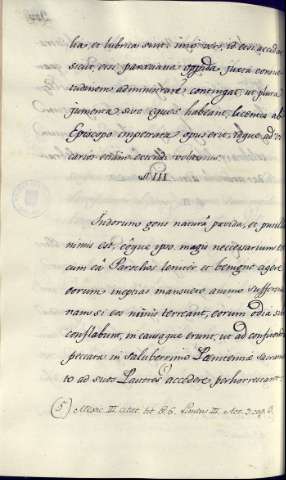 lia, et lubrica sunt
sicut cum per varia oppida juxta consue
tudinem administrare contingat, ut plura
jumenta sive equos habeant, licencia ab
Episcopo impetrata opus erit, idque ad vi
carios etiam extendi volumus.
§ III.
Indorum gens natura pavida, et pusill
nimis est, eoque ipso magis necessarium est
cum eis Parochos leniter et benigne agere
eorum ineptias mansueto animo sufferre
nam si eos nimio terreant, eorum odia sibi
conflabunt, in causaque erunt, ut ad confitenda
peccata in saluberrimo Poenitentiae sacramen
to ad suos Pastores accedere perhorrescant.
(5) Mexic. III. citat. tit. 6. Limens III. Act. 3. cap. 3.